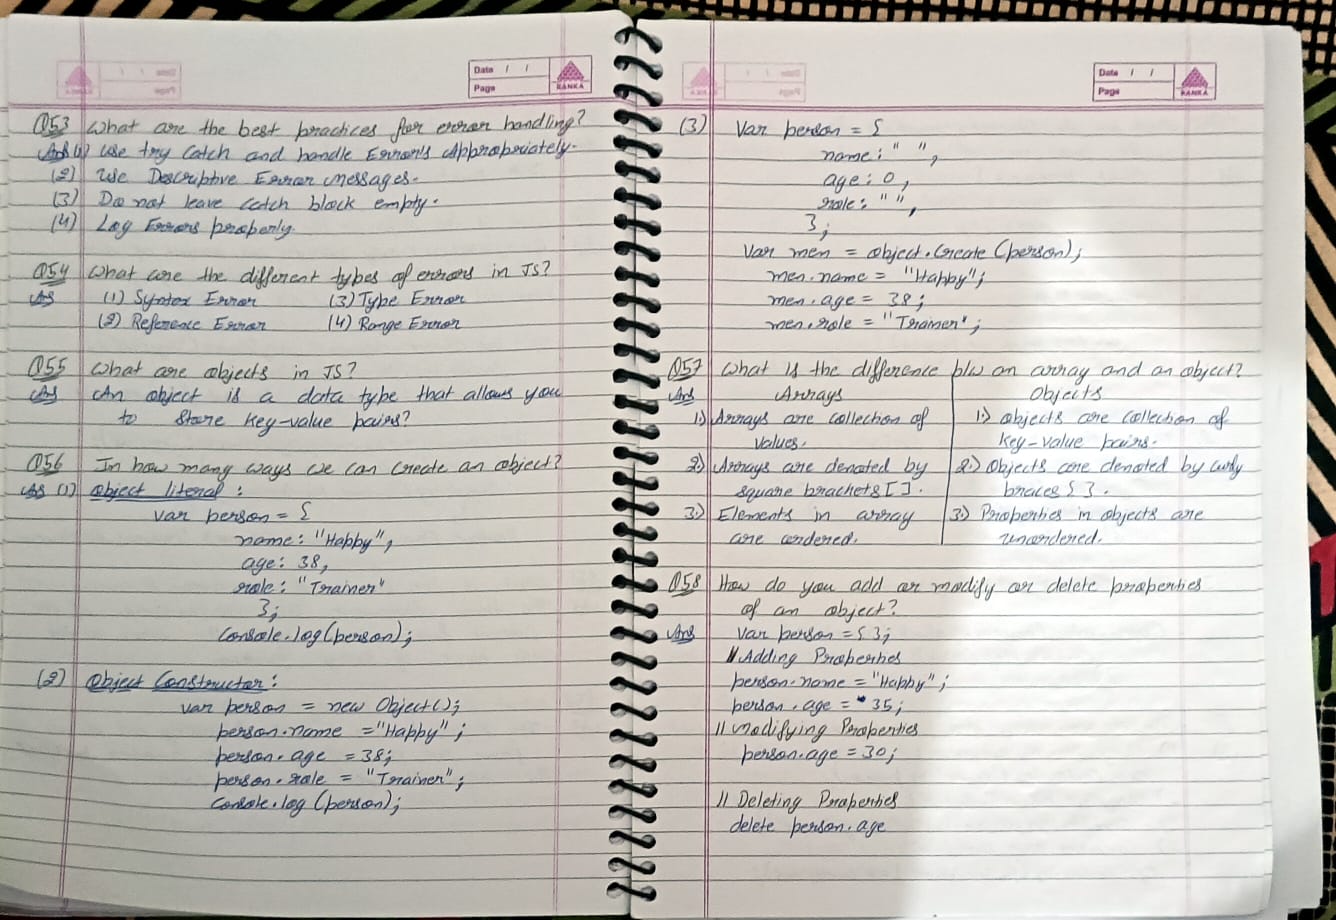 Date / /
Page
RANKA
Q53 What are the best practices for error handling?
Ans (1) Use try catch and handle Errors Appropriately.
(2) Use Descriptive Error messages.
(3) Do not leave catch block empty.
(4) Log Errors properly.
Q54 What are the different types of errors in JS?
Ans (1) Syntax Error (3) Type Error
(2) Reference Error (4) Range Error
Q55 What are objects in JS?
Ans An object is a data type that allows you
to store key-value pairs?
Q56 In how many ways we can create an object?
Ans (1) object literal :
var person = {
name: "Happy",
age: 38,
role: "Trainer"
};
console.log(person);
(2) Object Constructor:
var person = new Object();
person.name = "Happy";
person.age = 38;
person.role = "Trainer";
console.log(person);
Date / /
Page
RANKA
(3) Var person = {
name: " ",
age: 0,
role: " ",
};
Var men = object.Create (person);
men.name = "Happy";
men.age = 38;
men.role = "Trainer";
Q57 What is the difference b/w an array and an object?
Ans Arrays Objects
1) Arrays are collection of 1.) objects are collection of
values. key-value pairs.
2) Arrays are denoted by 2.) Objects are denoted by curly
square brackets [ ]. braces { }.
3.) Elements in array 3.) Properties in objects are
are ordered. unordered.
Q58 How do you add or modify or delete properties
of an object?
Ans var person = { };
// Adding Properties
person.name = "Happy";
person.age = 35;
// Modifying Properties
person.age = 30;
// Deleting Properties
delete person.age